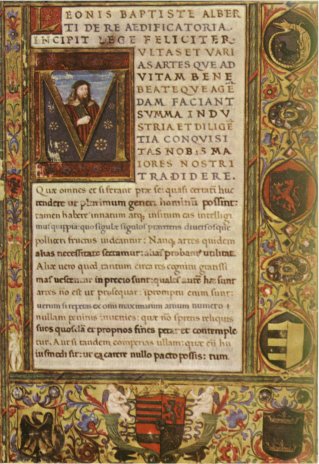 LEONIS BAPTISTE ALBER
TI DE RE AEDIFICATORIA.
INCIPIT LEGE FELICITER.
VLTAS ET VARI
AS ARTES QVE AD
VITAM BENE
BEATEQVE AGE
DAM FACIANT
SVMMA INDV
STRIA ET DILIGE
TIA CONQVISI
TAS NOBIS MA
IORES NOSTRI
TRADIDERE.
Quae omnes et si ferant prae se: quasi certatim huc
tendere ut plurimum generi hominum possint:
tamen habere innatum atq; insitum eis intelligi
mus quippiam: quo singule singulos praeter ceteras diversosque
polliceri fructus videantur: Nanq; artes quidem
alias necessitate sectamur: alias probamus utilitate.
Aliae vero quod tantum circa res cognitu gratissi
mas versentur in precio sunt: quales autem hae sint
artes no est ut prosequar: in promptu enim sunt:
verum si repetas ex omni maximarum artium numero
nullam penitus invenies: que no spretis reliquis
suos quosda et proprios fines petat et contemple
tur. Aut si tandem comperias ullam: qua cu hu
iusmodi sit: ut ea carere nullo pacto possis: tum